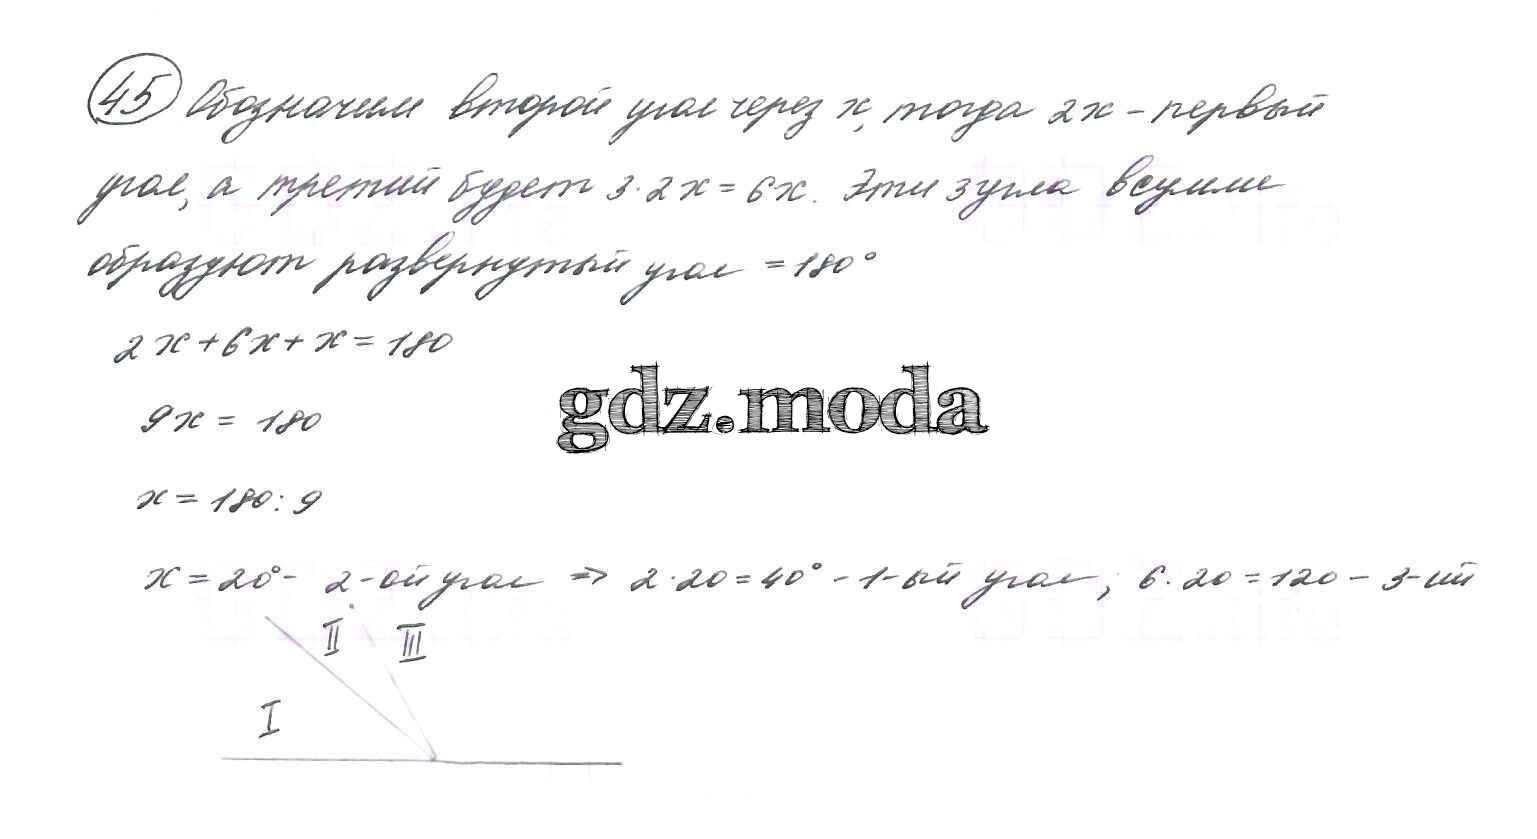 45 Обозначим второй угол через x, тогда 2x – первый
угол, а третий будет 3·2x = 6x. Эти 3 угла в сумме
образуют развернутый угол = 180°
2x + 6x + x = 180
9x = 180
gdz.moda
x = 180 : 9
x = 20° - 2-ой угол => 2·20 = 40° - 1-ый угол, 6·20 = 120 – 3-ий
II III
I